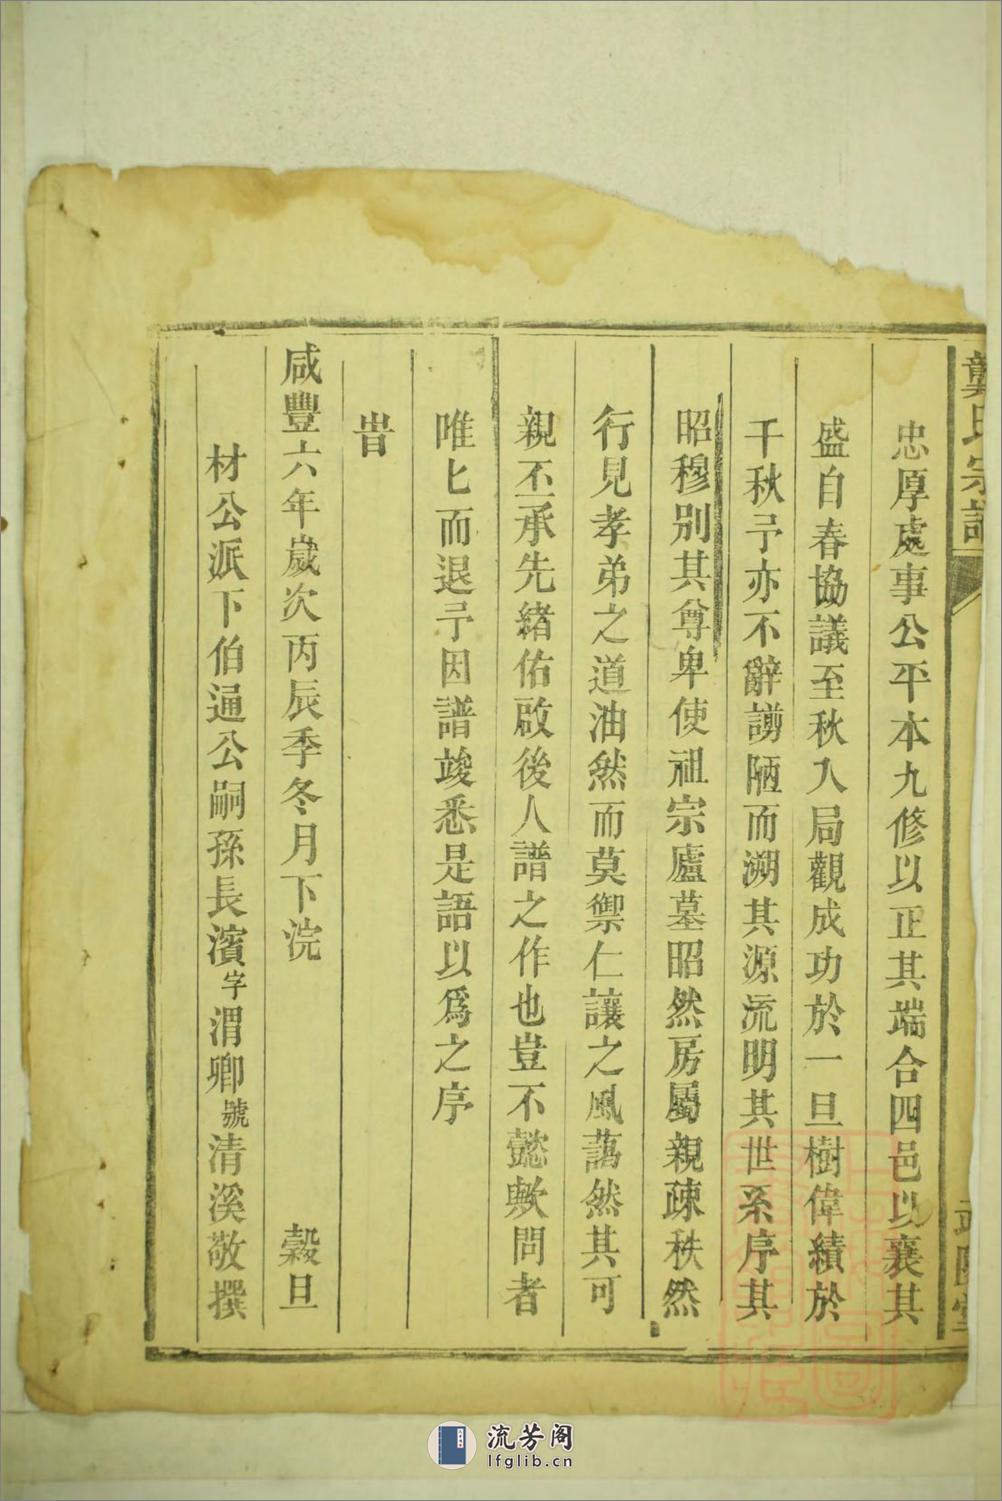 龔氏宗譜
忠厚處事公平本九修以正其端合四邑以襄其
盛自春協議至秋入局觀成功於一旦樹偉績於
千秋予亦不辭譾陋而溯其源流明其世系序其
昭穆別其尊卑使祖宗廬墓昭然房屬親疎秩然
行見孝弟之道油然而莫禦仁讓之風藹然其可
親丕承先緒佑啟後人譜之作也豈不懿歟問者
唯匕而退予因譜竣悉是語以爲之序
旹
咸豐六年歲次丙辰季冬月下浣 穀旦
材公派下伯通公嗣孫長濱字渭卿號清溪敬撰
流芳阁
lfglib.cn